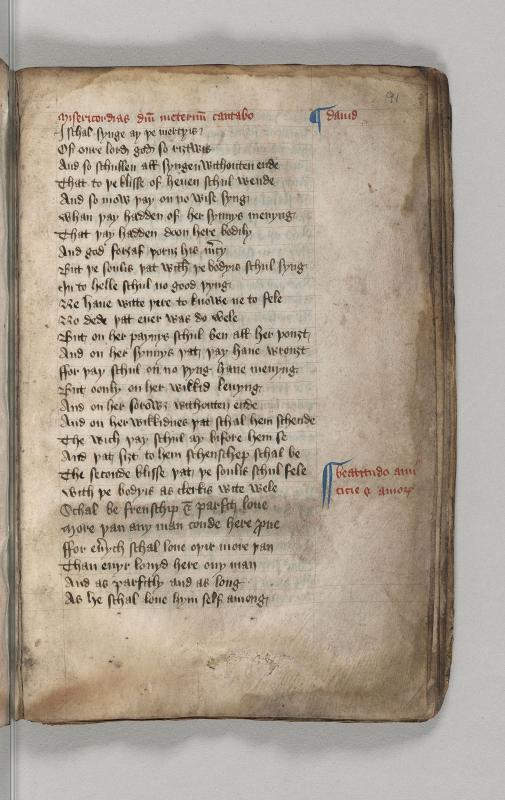 91
Misericordias dni in eternu cantabo
¶ dauid
I schal synge ay þe mercyis
Of oure lord god so riȝtwis
And so schullen all syngen withouten ende
That to þe blisse of heuen schul wende
And so mow þay on no wise syng
Whan þay hadden of her synnys menyng
That þay hadden doon here bodily
And god forȝaf hem his mcy
But þe soulis þat with þe bodyis schul syng
In to helle schul no good þyng
Ne haue witte þere to knowe ne to fele
No dede þat euer was do wele
But on her paynys schul ben all her þouȝt
And on her synnys þat þay haue wrouȝt
ffor þay schul on no þyng haue menyng
But oonly on her wikkid leuyng
And on her sorowȝ withouten ende
And on her wikkidnes þat schal hem schende
The wich þay schul ay bifore hem se
And þat siȝt to hem schenschep schal be
The seconde blisse þat þe soulis schul fele
¶ beatitudo ami
citie & amor
With þe bodyis as clerkis wite wele
Schal be frenschip & parfit loue
More þan any man coude here proue
ffor eueych schal loue oþir more þan
Than euyr louyd here ony man
And as parfitly and as long
As he schal loue hym self among